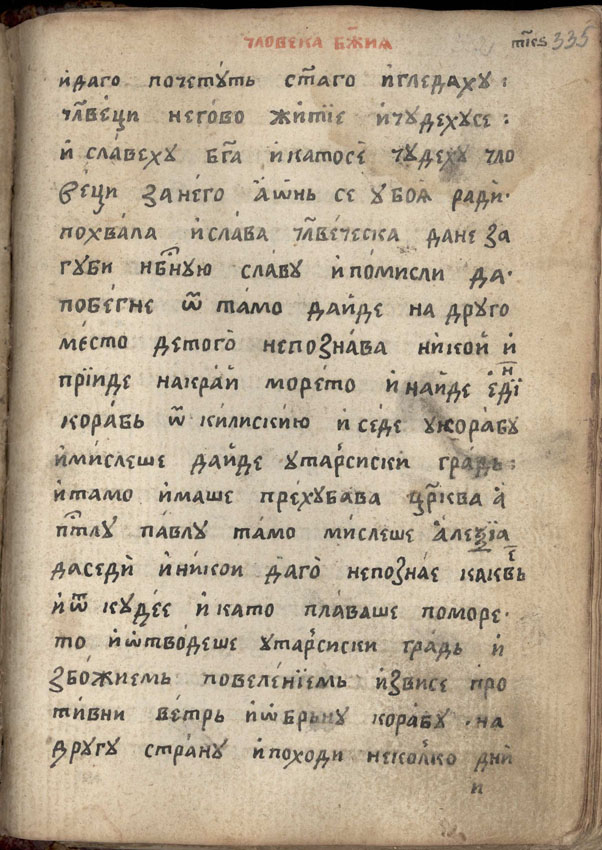 чловека бж҃иѧ
335
и҆даго почетꙋть ст҃аго и҆гледахꙋ :
чл҃веци негово жи́тїе и҆чꙋдехꙋсе :
и҆ сла́вехꙋ бг҃а и҆катосе чꙋдехꙋ чло
веци за него а҆ѡнь се ꙋбоѧ ради·
похвала и҆сла́ва чл҃веческа дане за
гꙋби нб҃нꙋю сла́вꙋ и҆по́мисли да·
побе́гне ѿ та́мо дай́де на дрꙋго
ме́сто детого̀ непозна́ва ни́кой и҆
прїи́де накрай море́то и҆ най́де е҆ді́н
кора́бь ѿ ки́лискию и҆ се́де ꙋкора́бꙋ
и҆ми́слеше дай́де ꙋтарсиски гра́дь :
и҆та́мо и҆́маше прехꙋ́бава цр҃ква а҆
пт҃лꙋ па́влꙋ та́мо ми́слеше а҆леѯі́а
даседѝ и҆ни́кои даго̀ непозна́е какв е҆ь
и҆ѿ кꙋде́е и҆като пла́ваше поморе́·
то и҆ѡ҆тво́деше ꙋтарсиски гра́дь и҆
збо́жиемь повеле́нїемь и҆зви́се про
ти́вни ве́трь и҆ѡ҆брьнꙋ кора́бꙋ ·на
дрꙋгꙋ стра́нꙋ и҆походи неколко дни́
и